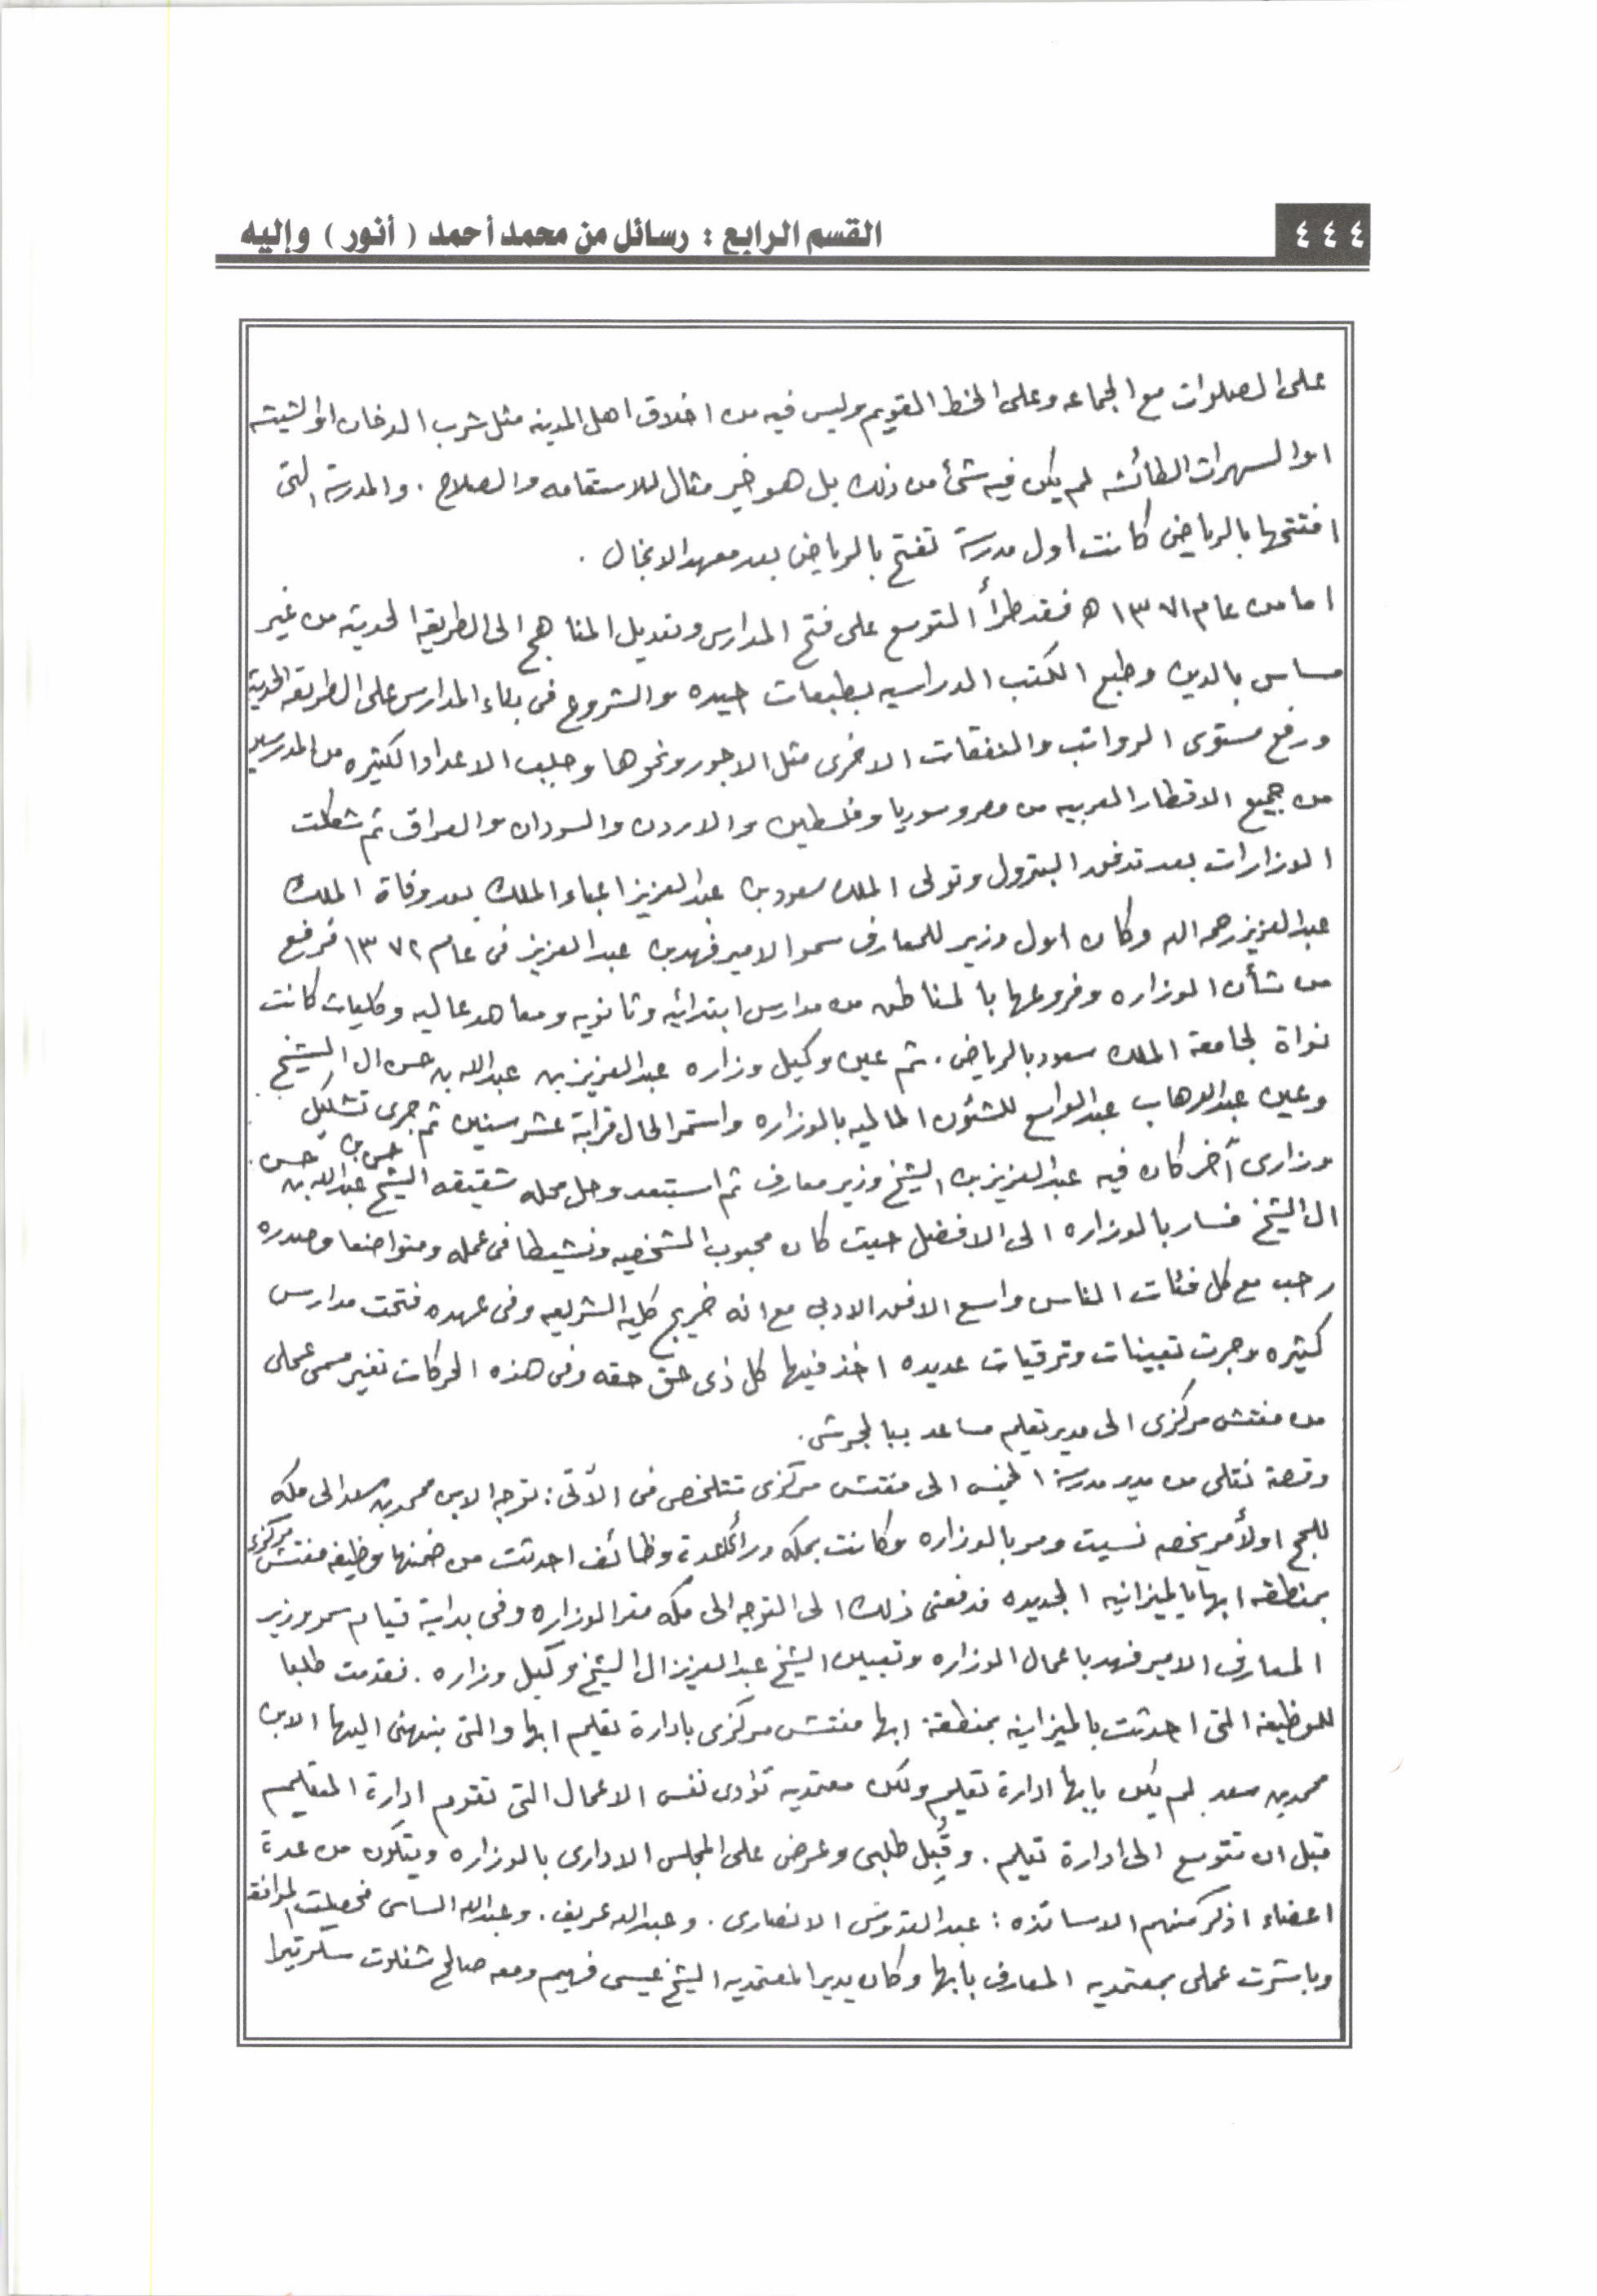 ٤٤٤
القسم الرابع : رسائل من محمد أحمد ( أنور ) وإليه
على الصلوات مع الجماعه وعلى الخط القويم وليس فيه من اخلاق اهل المدينه مثل شرب الدخان او الشيشه
او السهرات الطائشه لم يكن فيه شئ من ذلك بل هو خير مثال للاستقامه والصلاح . والمدرسة التى
افتتحها بالرياض كانت اول مدرسة تفتح بالرياض بعد معهد الانجال .
اما من عام ١٣٧١ ه فقد طرأ التوسع على فتح المدارس وتعديل المناهج الى الطريقه الحديثه من غير
مساس بالدين وطبع الكتب الدراسيه بطبعات جيده والشروع فى بناء المدارس على الطريقه الحديثة
ورفع مستوى الرواتب والنفقات الاخرى مثل الاجور ونحوها وجلب الاعداد الكثيره من المدرسين
من جميع الاقطار العربيه من مصر وسوريا وفلسطين والاردن والسودان والعراق ثم شكلت
الوزارات بعد تدفق البترول وتولى الملك سعود بن عبدالعزيز اعباء الملك بعد وفاة الملك
عبدالعزيز رحمه الله وكان اول وزير للمعارف سمو الامير فهد بن عبدالعزيز فى عام ١٣٧٢ فرفع
من شأن الوزاره وفروعها بالمناطق من مدارس ابتدائيه وثانويه ومعاهد عاليه وكليات كانت
نواة لجامعة الملك سعود بالرياض . ثم عين وكيل وزاره عبدالعزيز بن عبدالله بن حسن ال الشيخ
وعين عبدالوهاب عبدالواسع للشئون الماليه بالوزاره واستمر الحال قرابة عشر سنين ثم جرى تشكيل
وزارى آخر كان فيه عبدالعزيز بن الشيخ وزير معارف ثم استبعد وحل محله شقيقه الشيخ حسن بن عبدالله بن حسن
ال الشيخ فسار بالوزاره الى الافضل حيث كان محبوب الشخصيه ونشيطا فى عمله ومتواضعا وصدره
رحب مع كل فئات الناس واسع الافق الادبى مع انه خريج كلية الشريعه وفى عهده فتحت مدارس
كثيره وجرت تعيينات وترقيات عديده اخذ فيها كل ذى حق حقه وفى هذه الحركات تغير مسمى عملى
من مفتش مركزى الى مدير تعليم مساعد ببالجرشى .
وقصة نقلى من مدير مدرسة الخميس الى مفتش مركزى تتلخص فى الآتى : توجه الابن محمد بن سعد الى مكه
للحج اولأمر يخصه نسيت ومر بالوزاره وكانت بمكه ورأى عدة وظائف احدثت من ضمنها وظيفه مفتش مركزى
بمنطقه ابها بالميزانيه الجديده فدفعنى ذلك الى التوجه الى مكه مقر الوزاره وفى بداية قيام سمو وزير
المعارف الامير فهد باعمال الوزاره وتعيين الشيخ عبدالعزيز ال الشيخ وكيل وزاره . تقدمت طلبا
للوظيفه التى احدثت بالميزانيه بمنطقة ابها مفتش مركزى بادارة تعليم ابها والتى بنبهنى اليها الابن
محمد بن سعد لم يكن بابها ادارة تعليم ولكن معتمديه تؤادى نفس الاعمال التى تقوم ادارة التعليم
قبل ان تتوسع الى ادارة تعليم . وقُبِل طلبى وعرض على المجلس الادارى بالوزاره ويتكون من عدة
اعضاء اذكر منهم الاساتذه : عبدالقدوس الانصارى . وعبدالله عريف . وعبدالله الساسى فحصلت الموافقه
وباشرت عملى بمعتمديه المعارف بابها وكان يدير المعتمديه الشيخ عيسى فهيم ومعه صالح شفلوت سكرتيرا